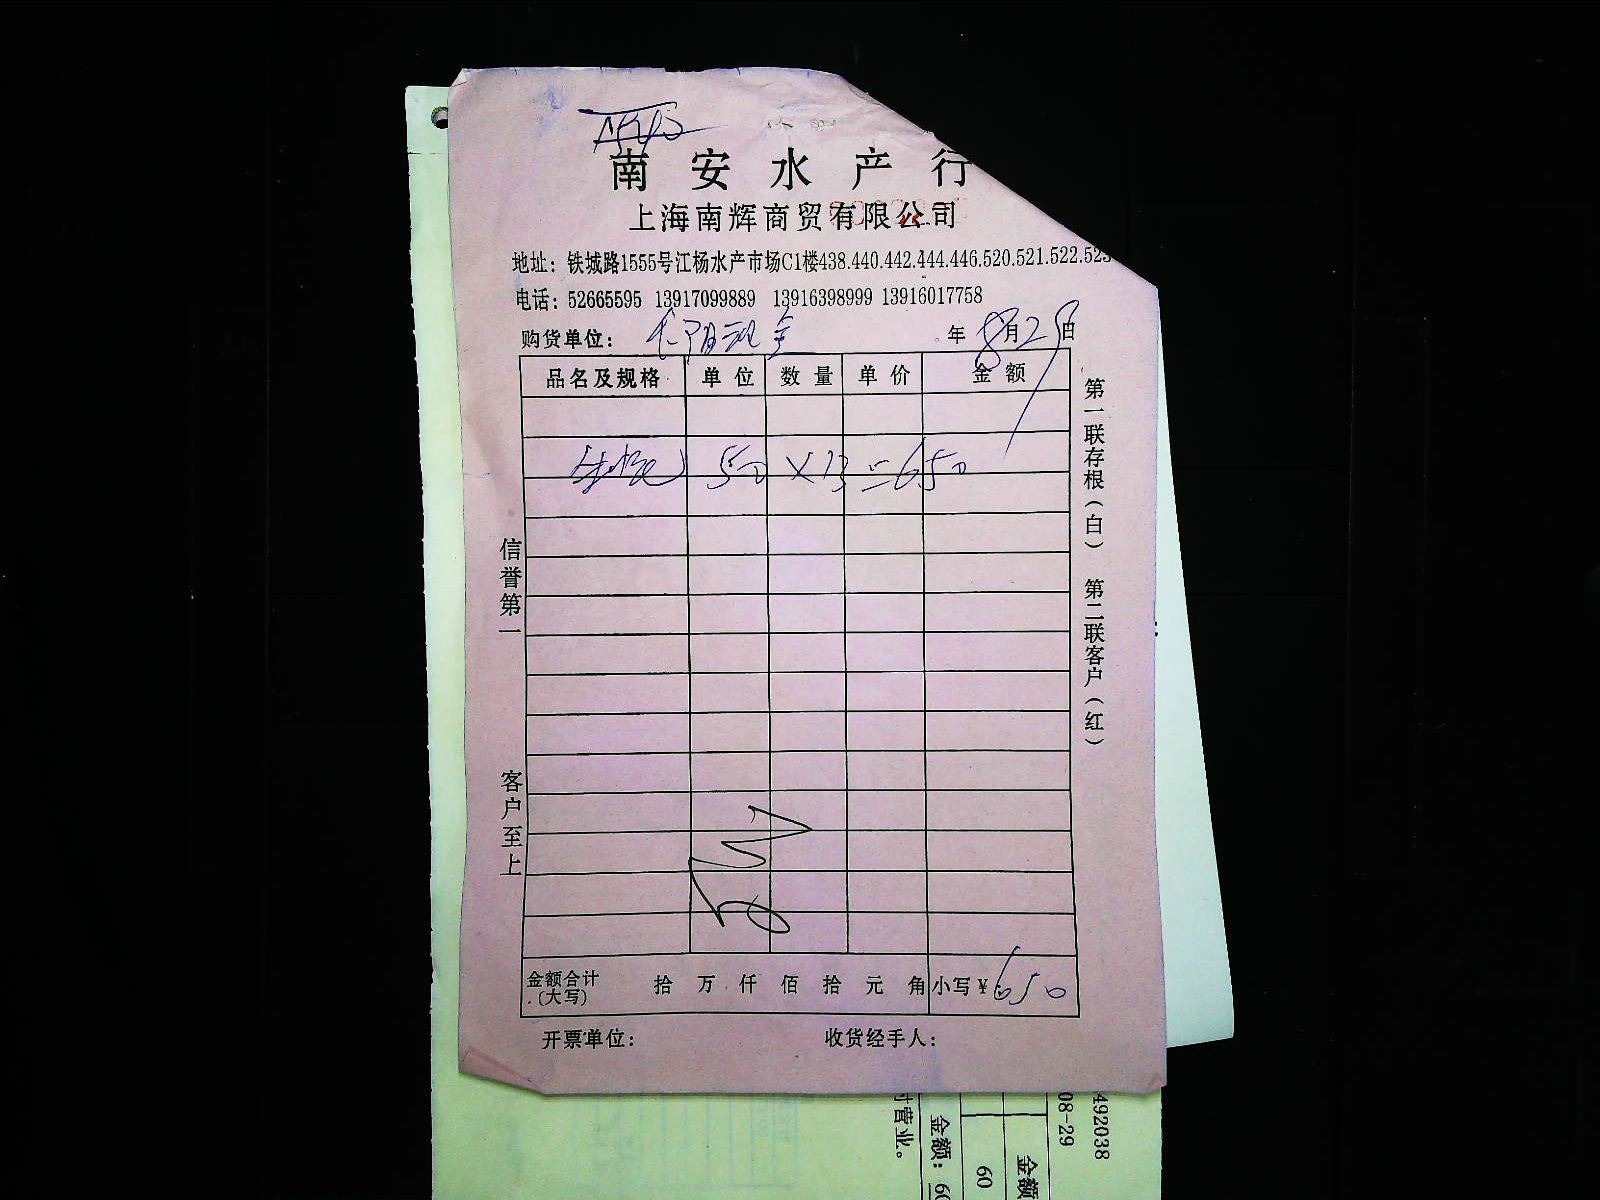 南安水产行
上海南辉商贸有限公司
地址：铁城路1555号江杨水产市场C1楼438.440.442.444.446.520.521.522.523
电话：52665595 13917099889 13916398999 13916017758
购货单位： 年 8月29日
品名及规格 单位 数量 单价 金额
50 × 13 = 650
信誉第一
客户至上
第一联存根（白） 第二联客户（红）
金额合计（大写） 拾 万 仟 佰 拾 元 角 小写¥650
开票单位： 收货经手人：
492038
08-29
金额
60
金额：
时营业。